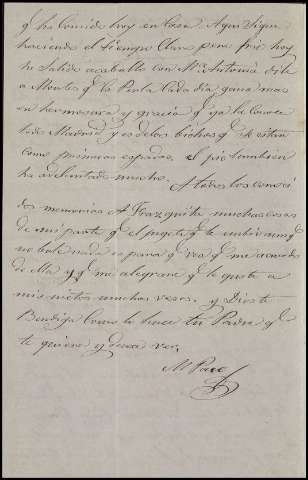 q.e ha Comido hoy en Casa. Aqui sigue
haciendo el tiempo Claro pero frio hoy
he salido a caballo con M.a Antonia dile
a Montes q.e la Perla cada dia gana mas
en hermosura y gracia q.e ya la Conoce
todo Madrid y es de los bichos q.e se citan
como primeras espadas, el pio tambien
ha adelantado mucho. A todos los conoci
dos memorias A Frazquita muchas cosas
de mi parte q.e el jugete q.e le embio aunq.e
no bale nada es para q.e vea q.e me acuerdo
de ella y q.e me alegrare q.e le guste a
mis nietos muchos vesos. y Dios te
Bendiga Como lo hace tu Padre q.e
te quiere y desea ver.
M Paco